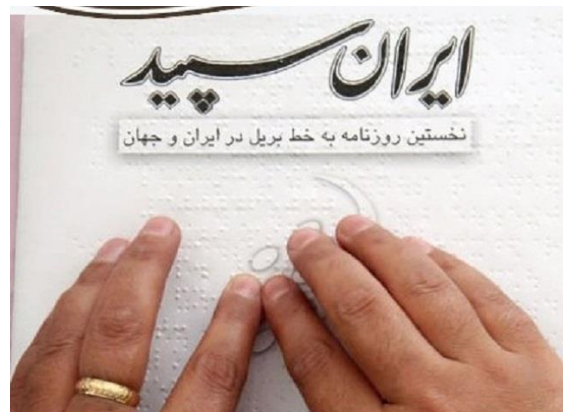 ایران سپید
نخستین روزنامه به خط بریل در ایران و جهان